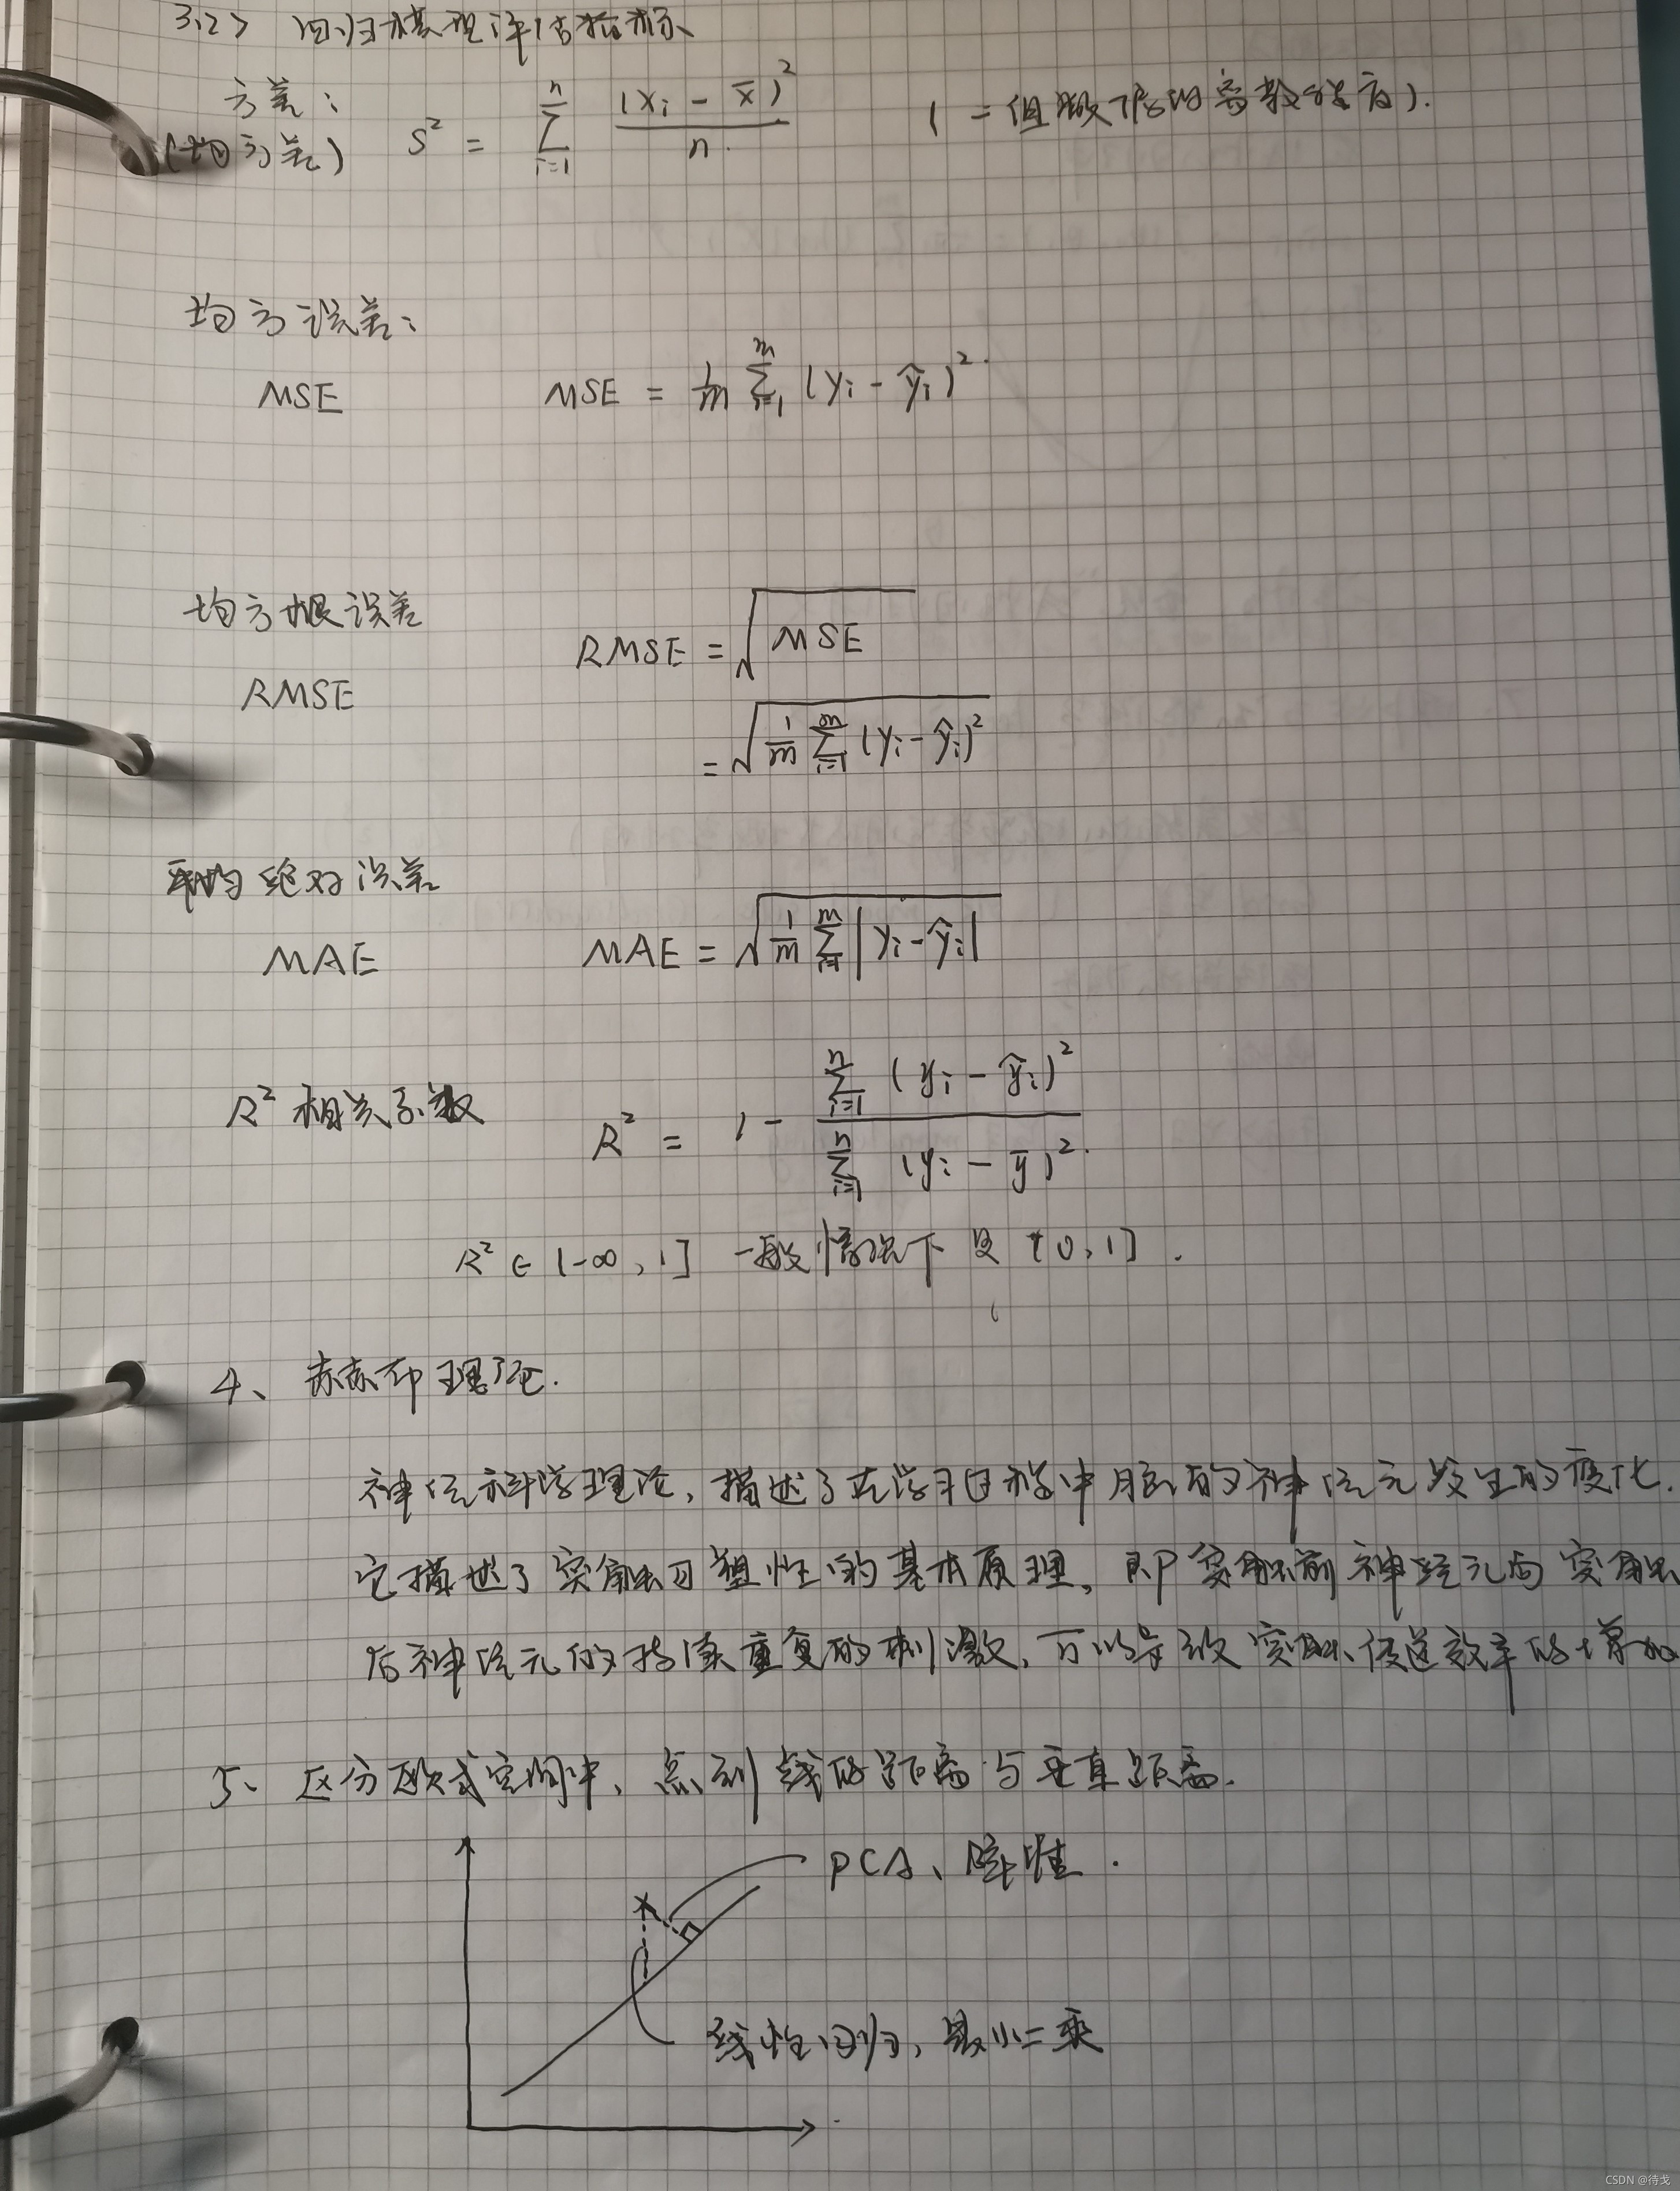 3.2> 回归模型评估指标
方差:
(均方差) S² = \sum_{i=1}^{n} \frac{(x_i - \bar{x})^2}{n} (一组数据的离散程度).
均方误差:
MSE MSE = \frac{1}{m} \sum_{i=1}^{m} (y_i - \hat{y}_i)^2.
均方根误差
RMSE RMSE = \sqrt{MSE}
= \sqrt{\frac{1}{m} \sum_{i=1}^{m} (y_i - \hat{y}_i)^2}
平均绝对误差
MAE MAE = \sqrt{\frac{1}{m} \sum_{i=1}^{m} |y_i - \hat{y}_i|}
R² 相关系数 R² = 1 - \frac{\sum_{i=1}^{n} (y_i - \hat{y}_i)^2}{\sum_{i=1}^{n} (y_i - \bar{y})^2}.
R² ∈ (-∞, 1] 一般情况下 (0, 1].
4、赫布理论.
神经科学理论, 描述了在学习过程中脑的神经元发生的变化.
它描述了突触可塑性的基本原理, 即突触前神经元向突触
后神经元的持续重复的刺激, 可以导致突触传递效率的增加
5、区分欧式空间中, 点到线的距离与垂直距离.
PCA、降维.
线性回归, 最小二乘
CSDN @待戈